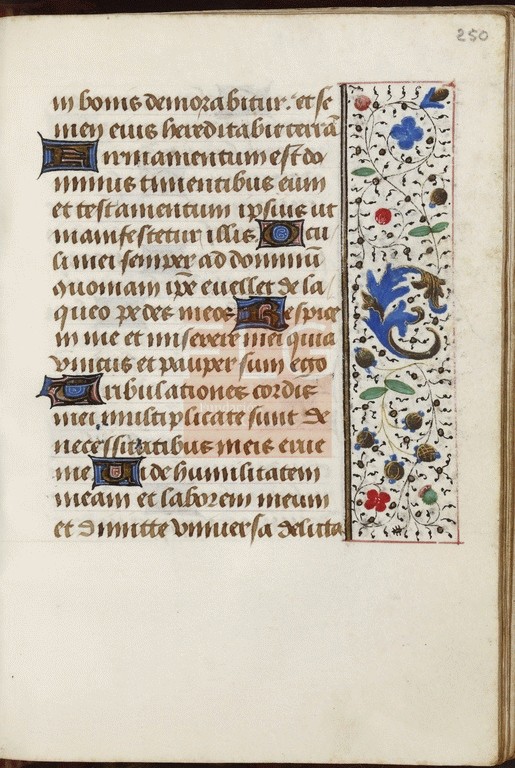 250
in bonis demorabitur. et se
men eius hereditabit terrā
Firmamentum est do
minus timentibus eum
et testamentum ipsius ut
manifestetur illis Ocu
li mei semper ad dominū
quoniam ip̄e euellet de la
queo pedes meos Respice
in me et miserere mei quia
vnicus et pauper sum ego
Tribulationes cordis
mei multiplicate sunt de
necessitatibus meis erue
me Uide humilitatem
meam et laborem meum
et dimitte vniuersa delicta